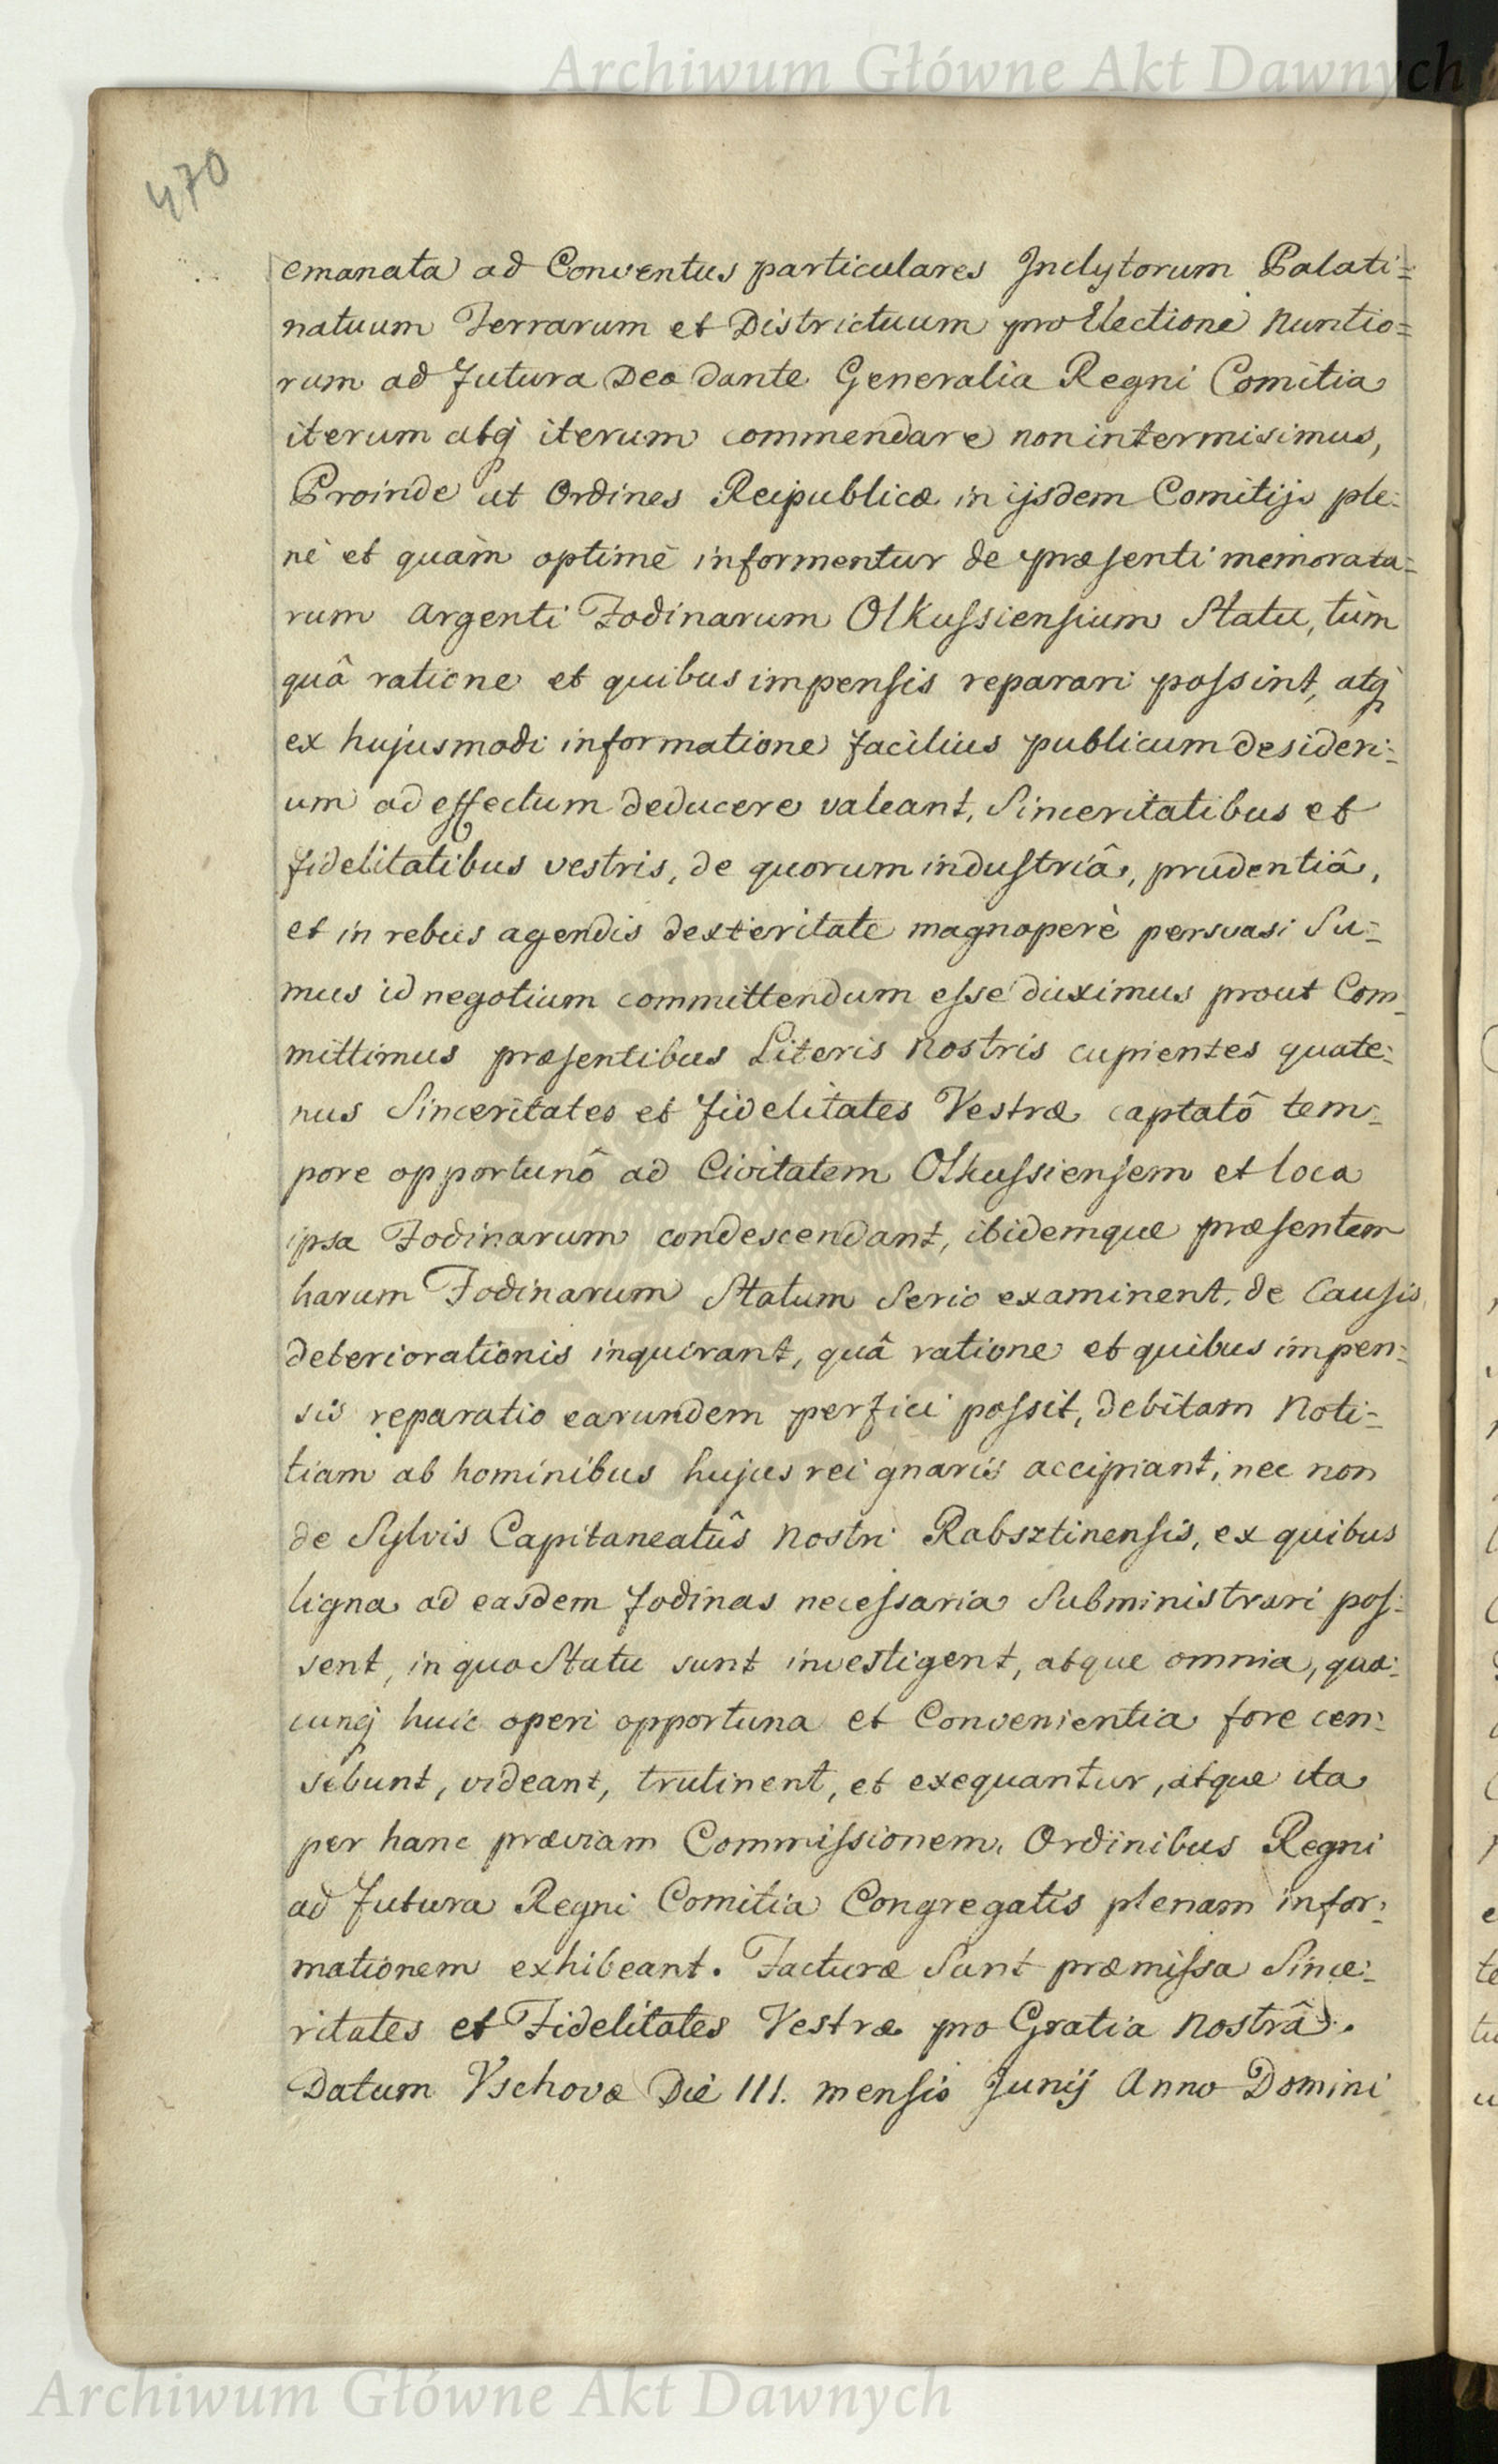 Archiwum Główne Akt Dawnych
470
emanata ad Conventus particulares Inclytorum Palati=
natuum Terrarum et Districtuum pro Electione Nuntio=
rum ad futura Deo dante Generalia Regni Comitia
iterum atq̃ iterum commendare non intermisimus,
Proinde ut Ordines Reipublicæ in ijsdem Comitijs ple=
nè et quàm optimè informentur de præsenti memorata=
rum Argenti Fodinarum Olkussiensium Statu, tùm
quâ ratione et quibus impensis reparari possint, atq̃
ex hujusmodi informatione facilius publicum desideri=
um ad effectum deducere valeant, Sinceritatibus et
fidelitatibus vestris, de quorum industriâ, prudentiâ,
et in rebus agendis dexteritate magnoperè persuasi Su=
mus id negotium committendum esse duximus prout Com=
mittimus præsentibus Literis Nostris cupientes quate=
nus Sinceritates et fidelitates Vestræ captatô tem=
pore opportunô ad Civitatem Olkussiensem et loca
ipsa Fodinarum condescendant, ibidemque præsentem
harum Fodinarum Statum Serio examinent, de Causis
deteriorationis inquirant, quâ ratione et quibus impen=
sis reparatio earundem perfici possit, debitam Noti=
tiam ab hominibus hujus rei gnaris accipiant, nec non
de Sylvis Capitaneatûs Nostri Rabsztinensis, ex quibus
ligna ad easdem fodinas necessaria Subministrari pos=
sent, in quo Statu sunt investigent, atque omnia, quæ=
cunq̃ huic operi opportuna et Convenientia fore cen=
sebunt, videant, trutinent, et exequantur, atque ita
per hanc præviam Commissionem, Ordinibus Regni
ad futura Regni Comitia Congregatis plenam infor=
mationem exhibeant. Facturæ Sunt præmissa Since=
ritates et Fidelitates Vestræ pro Gratia Nostrâ.
Datum Vschovæ Die III. mensis Junij Anno Domini
Archiwum Główne Akt Dawnych